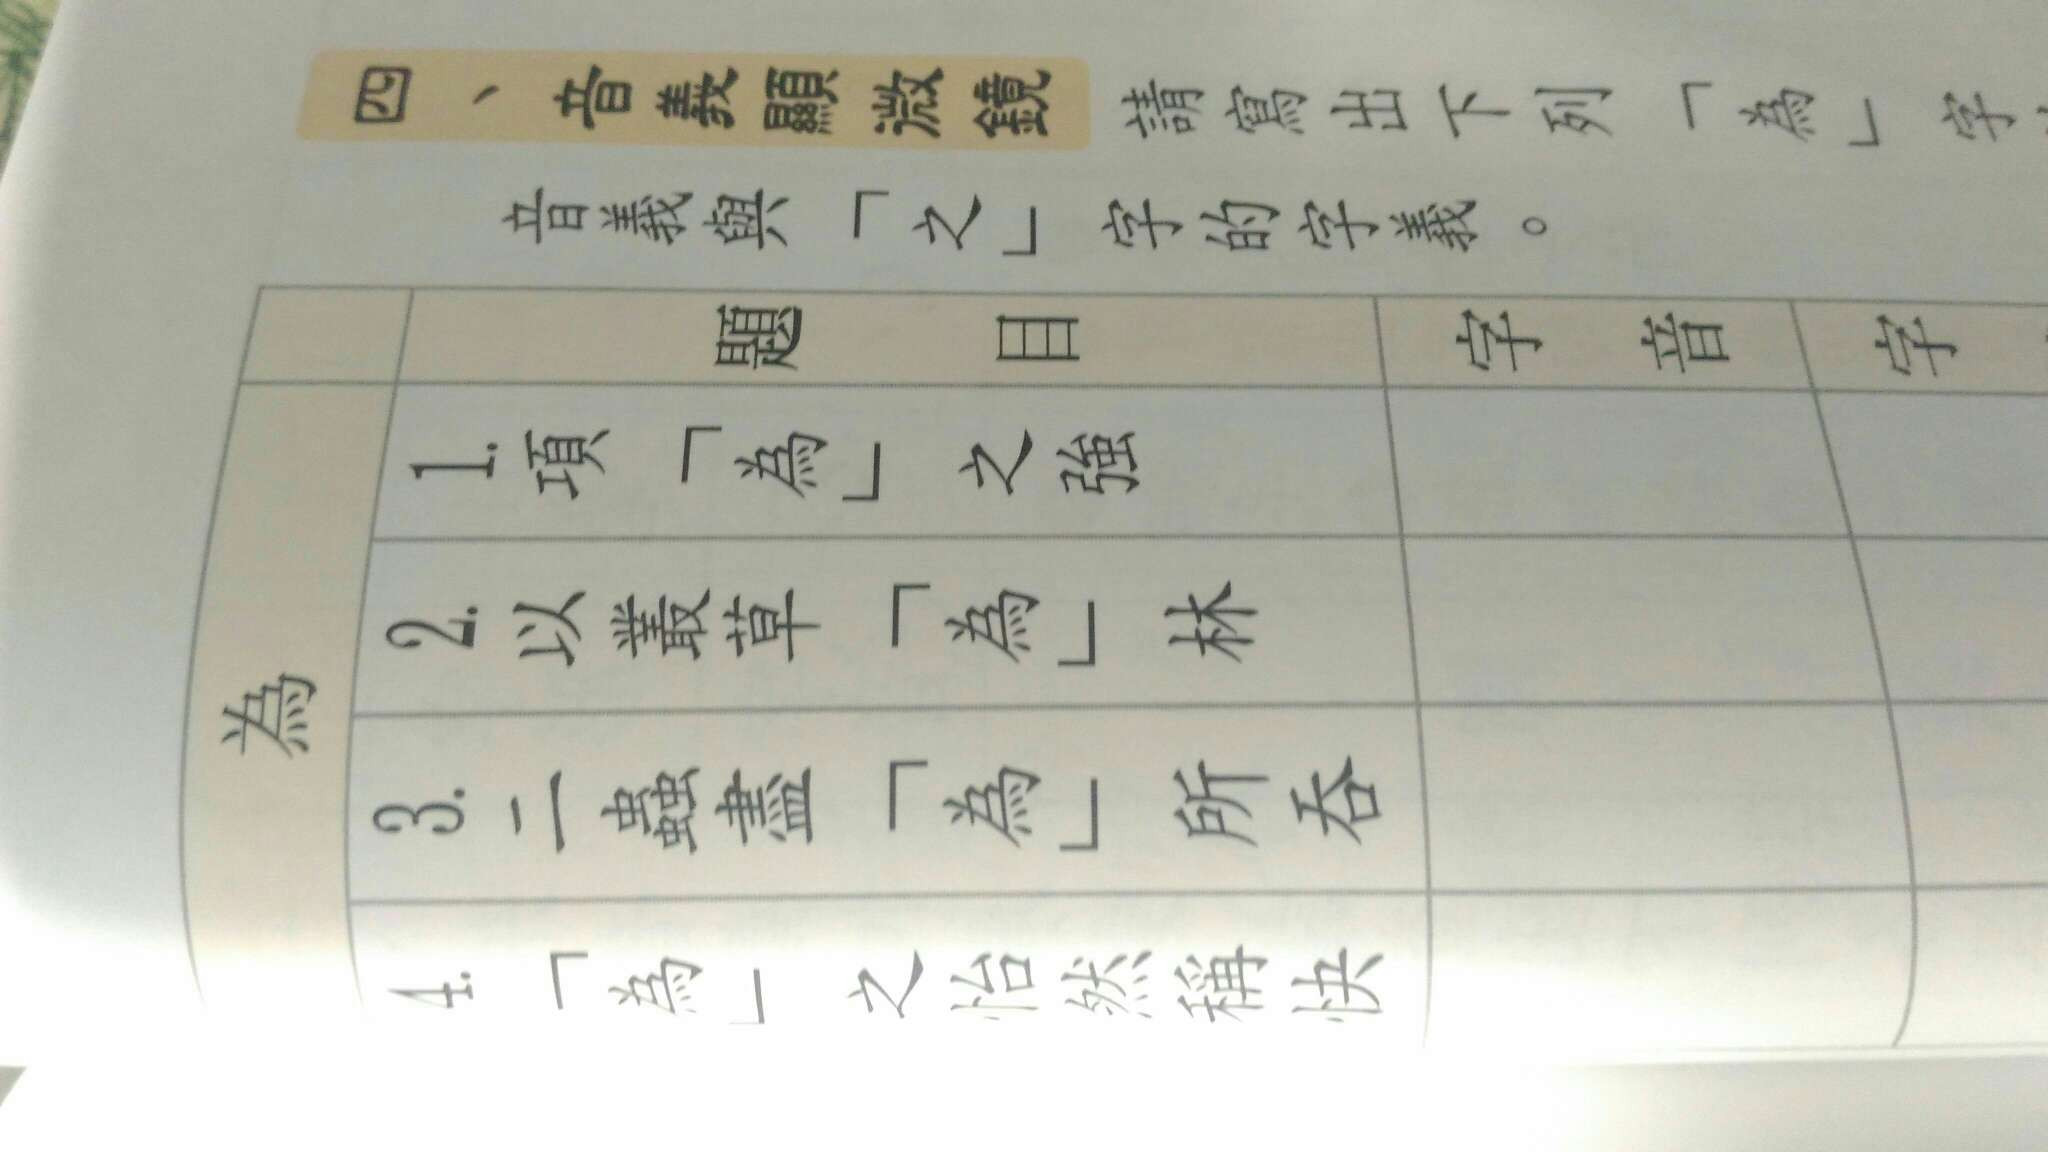 四、音義顯微鏡 請寫出下列「為」字
音義與「之」字的字義。
題目 字音 字
為
1. 項「為」之強
2. 以叢草「為」林
3. 二蟲盡「為」所吞
4. 「為」之怡然稱快